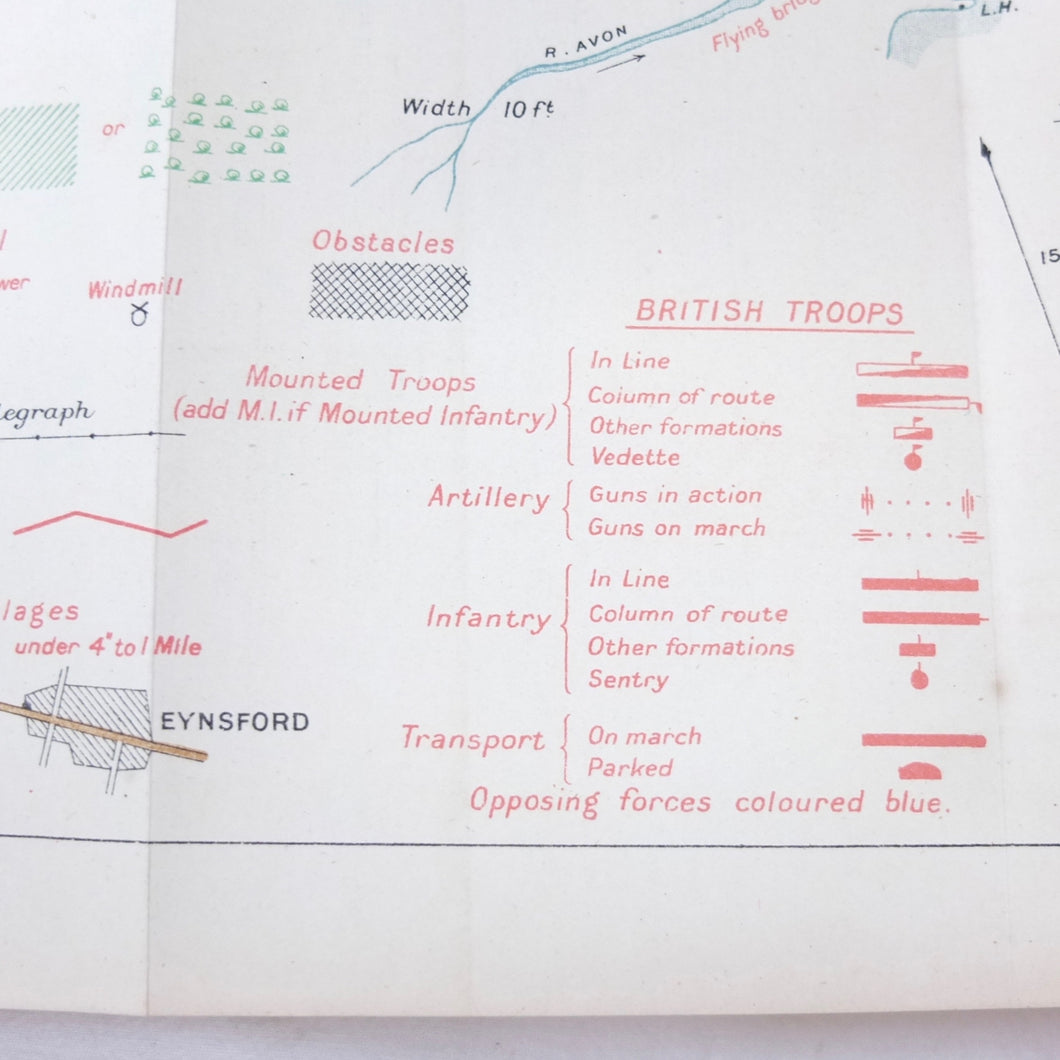 R. AVON
Flying
L.H.
Width 10 ft.
or
15
Obstacles
Windmill
BRITISH TROOPS
Mounted Troops
(add M.I. if Mounted Infantry)
In Line
Column of route
Other formations
Vedette
Artillery
Guns in action
Guns on march
Infantry
In Line
Column of route
Other formations
Sentry
under 4" to 1 Mile
EYNSFORD
Transport
On march
Parked
Opposing forces coloured blue.